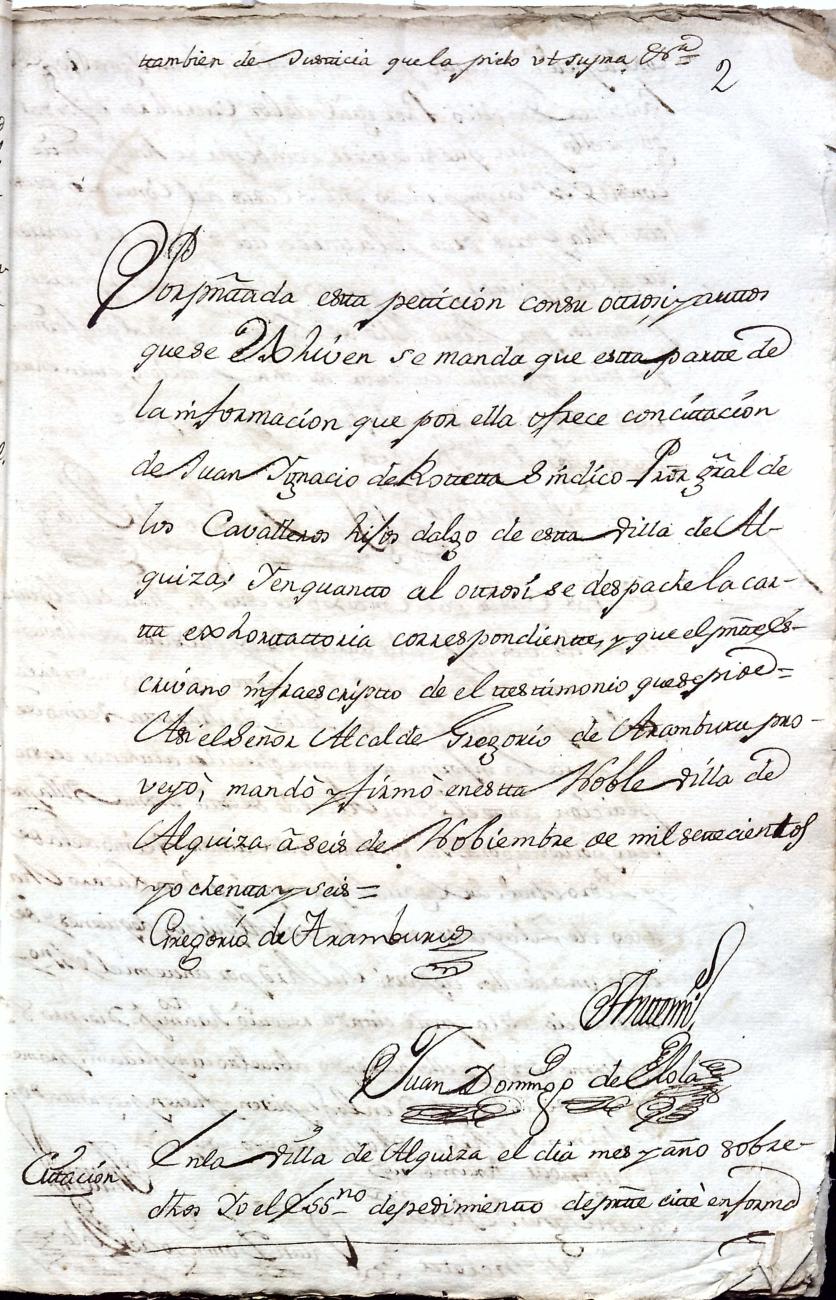 ttambien de Justicia que la pido ut supra &ra=
2
Por pnttada estta petticion con su ottrosi, y auttos
que se Exhiven se manda que estta partte de
la informacion que por ella ofrece con cittacion
de Juan Ygnacio de Rotteta Sindico Pror gral de
los Cavalleros hijos dalgo de estta villa de Al-
quiza; Y en quantto al ottrosi se despache la car-
tta exhorttattoria correspondientte, y que el pntte Es-
crivano infraescriptto de el testtimonio que se pide=
Asi el Señor Alcalde Gregorio de Aramburu pro-
veyò, mandò y firmò en estta Noble villa de
Alquiza à seis de Nobiembre de mil settecientos
y ochentta y seis=
Gregorio de Aramburu
Antemi
Juan Domingo de Elola
Cittacion
En la villa de Alquiza el dia mes y año sobre-
dhos Yo el Essno de pedimientto de partte cittè en forma